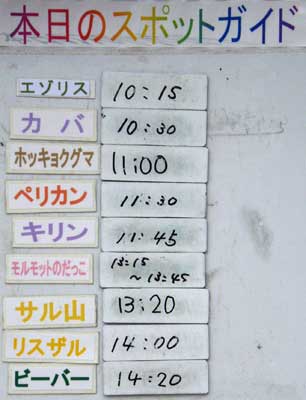 本日のスポットガイド
エゾリス 10:15
カバ 10:30
ホッキョクグマ 11:00
ペリカン 11:30
キリン 11:45
モルモットのだっこ 13:15
～13:45
サル山 13:20
リスザル 14:00
ビーバー 14:20